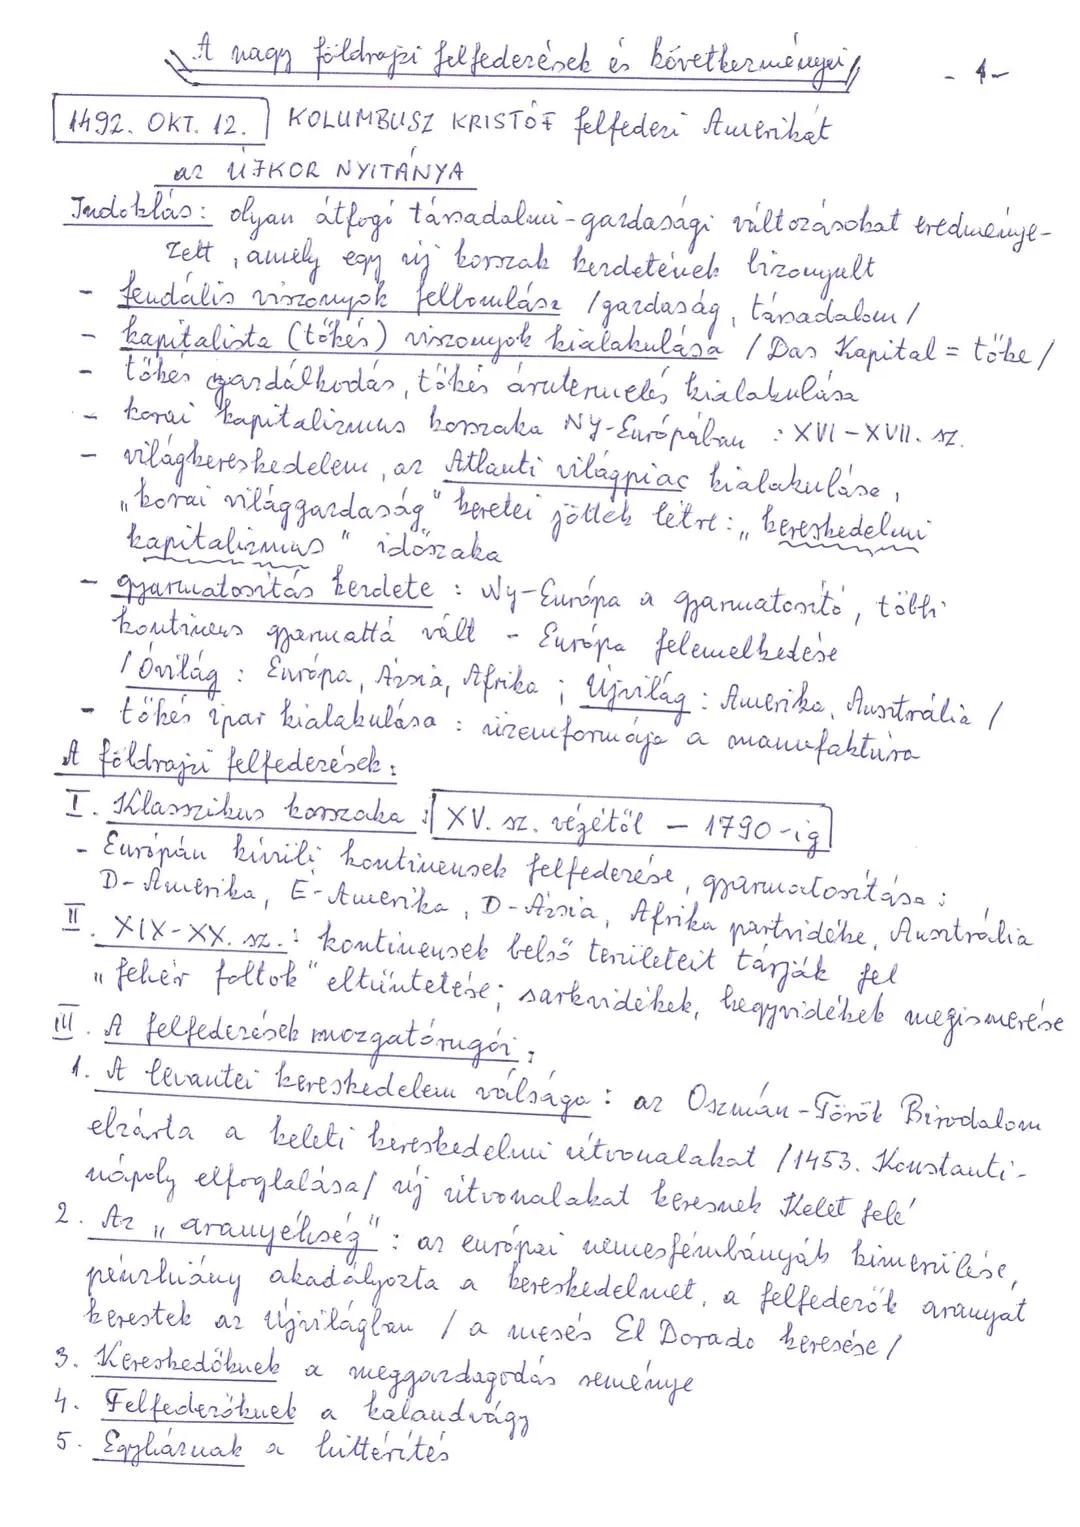 A nagy földrajzi felfedezések és következményei
- 1 -
1492. OKT. 12. KOLUMBUSZ KRISTÓF felfedezi Amerikát
az ÚJKOR NYITÁNYA
Indoklás: olyan átfogó társadalmi-gazdasági változásokat eredménye-
zett, amely egy új korszak kezdetének bizonyult
- feudális viszonyok felbomlása /gazdaság, társadalom/
- kapitalista (tőkés) viszonyok kialakulása / Das Kapital = tőke /
- tőkés gazdálkodás, tőkés árutermelés kialakulása
- korai kapitalizmus korszaka NY-Európában : XVI - XVII. sz.
- világkereskedelem, az Atlanti világpiac kialakulása,
„korai világgazdaság" keretei jöttek létre: „kereskedelmi
kapitalizmus" időszaka
- gyarmatosítás kezdete : Ny-Európa a gyarmatosító, többi
kontinens gyarmattá vált - Európa felemelkedése
/ Óvilág : Európa, Ázsia, Afrika ; Újvilág : Amerika, Ausztrália /
- tőkés ipar kialakulása : üzemformája a manufaktúra
A földrajzi felfedezések:
I. Klasszikus korszaka : XV. sz. végétől - 1790-ig
- Európán kívüli kontinensek felfedezése, gyarmatosítása :
D-Amerika, É-Amerika, D-Ázsia, Afrika partvidéke, Ausztrália
II. XIX-XX. sz. : kontinensek belső területeit tárják fel
„fehér foltok" eltüntetése; sarkvidékek, hegyvidékek megismerése
III. A felfedezések mozgatórugói:
1. A levantei kereskedelem válsága : az Oszmán-Török Birodalom
elzárta a keleti kereskedelmi útvonalakat /1453. Konstanti-
nápoly elfoglalása/ új útvonalakat keresnek Kelet felé
2. Az „aranyéhség" : az európai nemesfémbányák kimerülése,
pénzhiány akadályozta a kereskedelmet, a felfedezők aranyat
kerestek az Újvilágban / a mesés El Dorado keresése /
3. Kereskedőknek a meggazdagodás reménye
4. Felfedezőknek a kalandvágy
5. Egyháznak a hittérítés